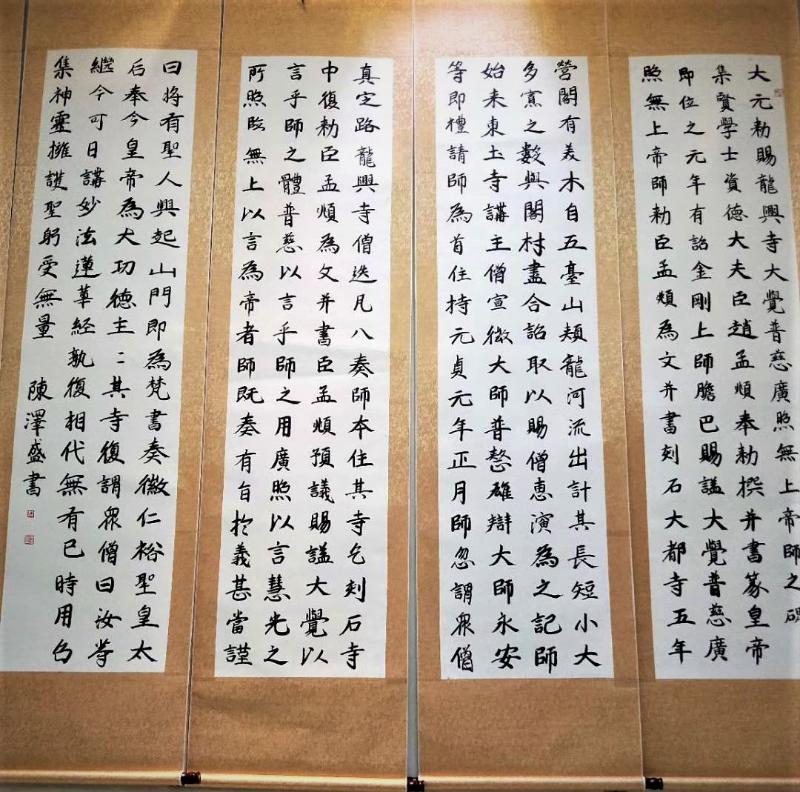 大元勅賜龍興寺大覺普慈廣照無上帝師之碑
集賢學士資德大夫臣趙孟頫奉勅撰并書篆皇帝
即位之元年有詔金剛上師膽巴賜謚大覺普慈廣
照無上帝師勅臣孟頫為文并書刻石大都寺五年
營閣有美木自五臺山頰龍河流出計其長短小大
多寡之數與閣材盡合詔取以賜僧惠演為之記師
始来東土寺講主僧宣微大師普整雄辯大師永安
等即禮請師為首住持元貞元年正月師忽謂眾僧
真定路龍興寺僧迭凡八奏師本住其寺乞刻石寺
中復勅臣孟頫為文并書臣孟頫預議賜謚大覺以
言乎師之體普慈以言乎師之用廣照以言慧光之
所照臨無上以言為帝者師既奏有旨於義甚當謹
曰將有聖人興起山門即為梵書奏徽仁裕聖皇太
后奉今皇帝為大功德主〻其寺復謂眾僧曰汝等
繼今可日講妙法蓮華經孰復相代無有已時用召
集神靈擁護聖躬受無量
陳澤盛書